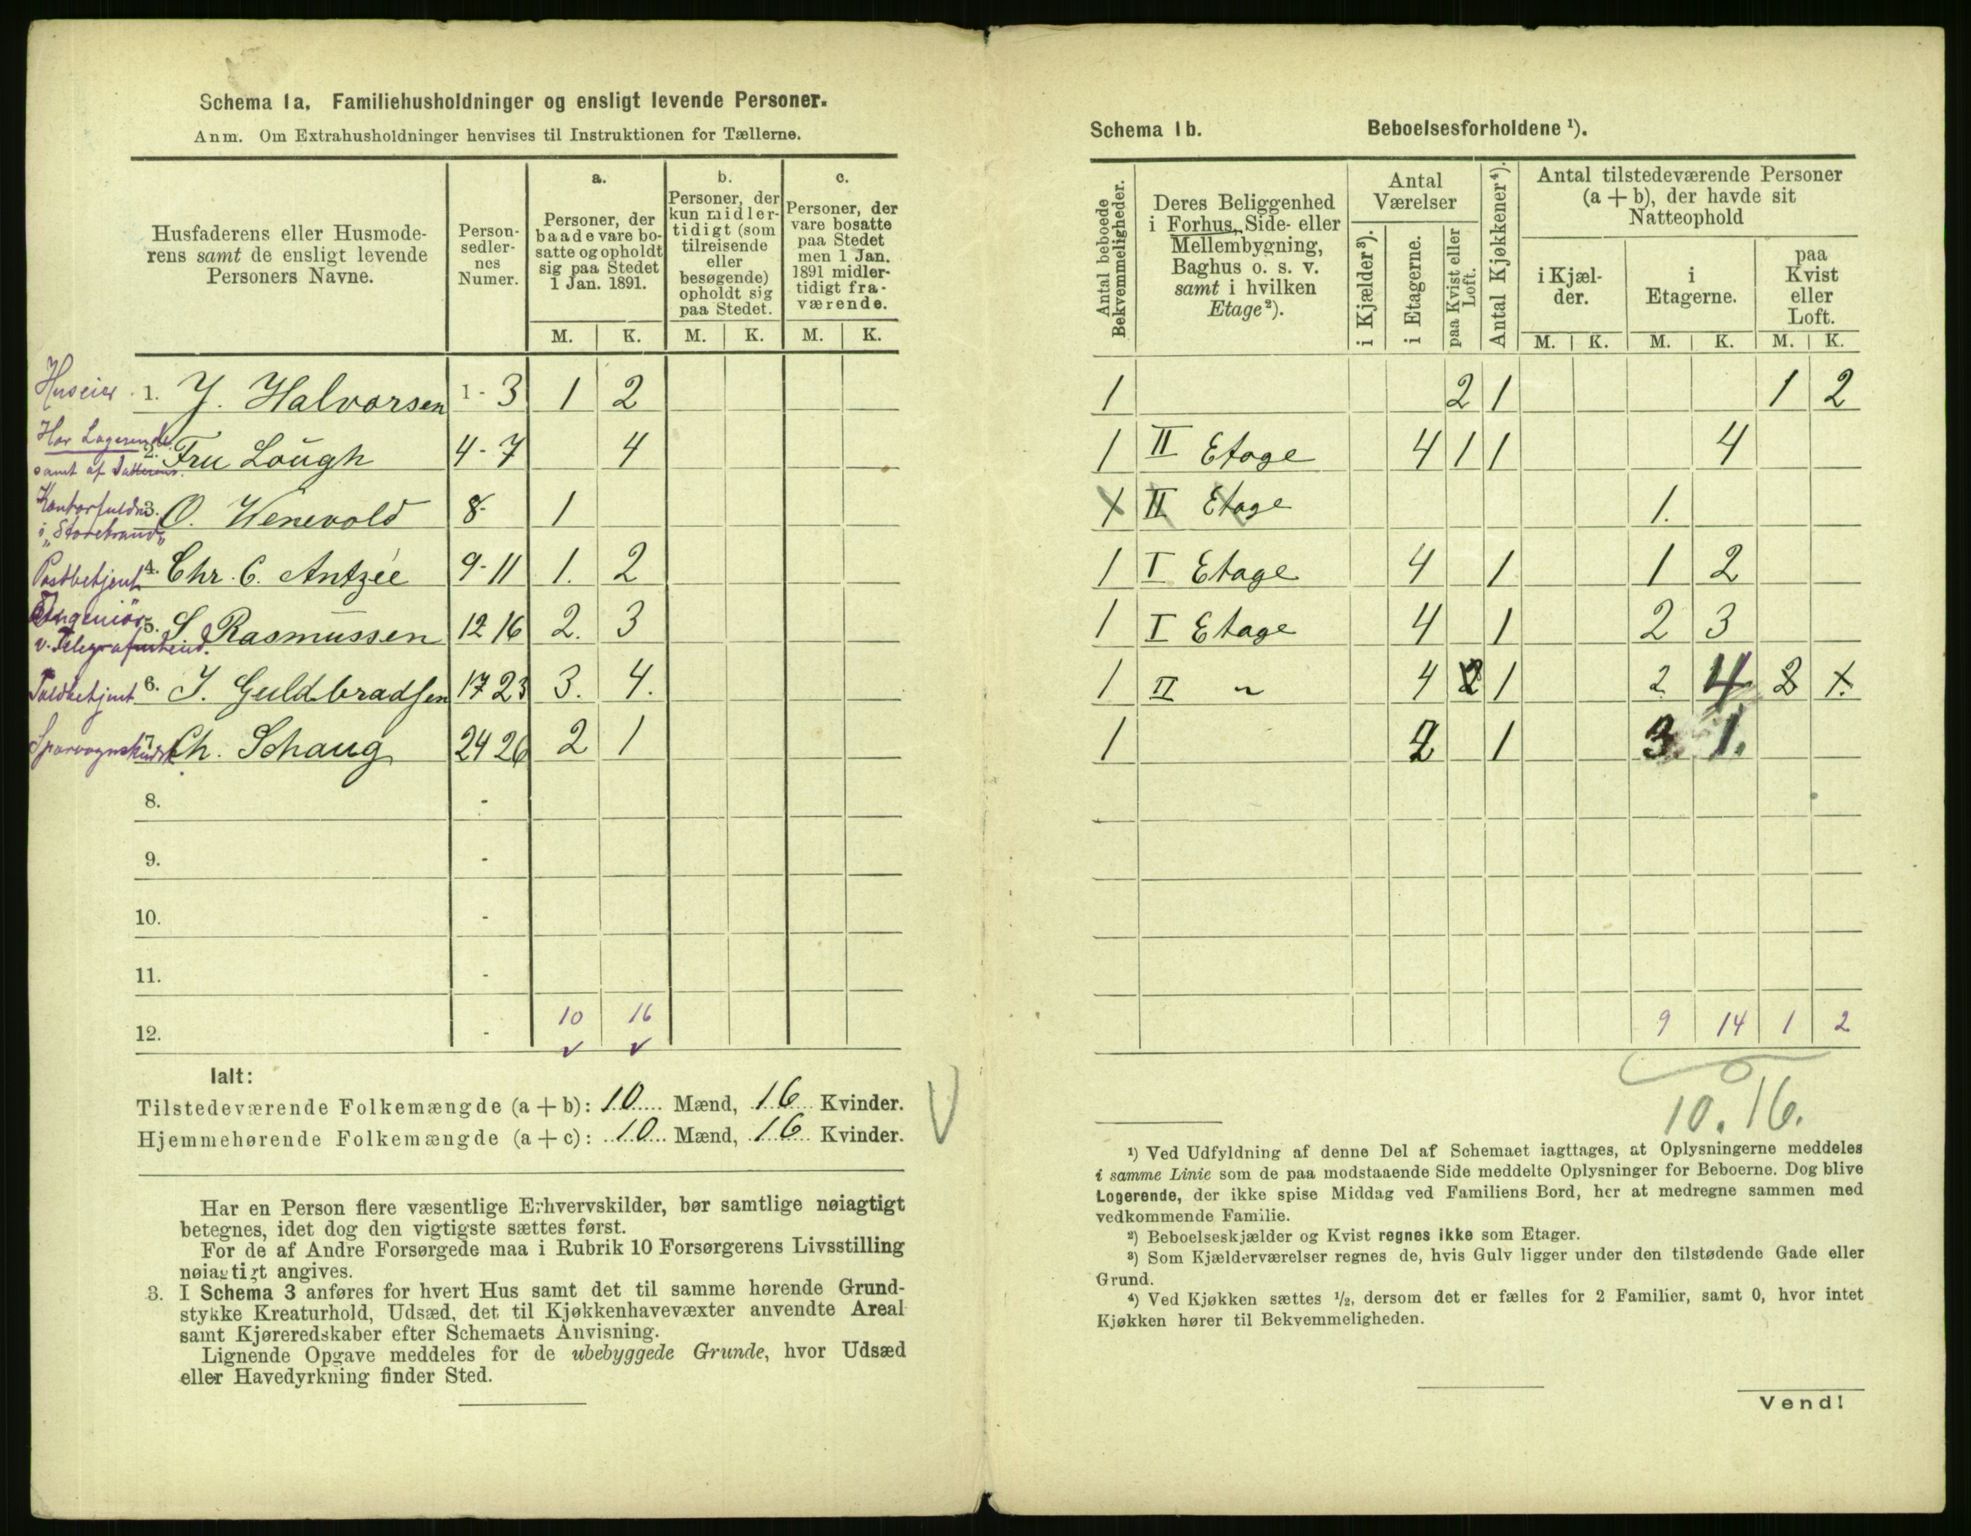 Schema 1a. Familiehusholdninger og ensligt levende Personer.
Anm. Om Extrahusholdninger henvises til Instruktionen for Tællerne.
Husfaderens eller Husmode-
rens samt de ensligt levende
Personers Navne.
Person-
sedler-
nes
Numer.
a.
Personer, der
baade vare bo-
satte og opholdt
sig paa Stedet
1 Jan. 1891.
b.
Personer, der
kun midler-
tidigt (som
tilreisende
eller
besøgende)
opholdt sig
paa Stedet.
c.
Personer, der
vare bosatte
paa Stedet
men 1 Jan.
1891 midler-
tidigt fra-
værende.
M. K. M. K. M. K.
Huseier 1. J. Halvorsen 1-3 1 2
Har Logerende 2. Fru Lough 4-7 4
samt af
Kontorfuldm. 3. O. Wenevold 8- 1
i "Storebrand"
Postbetjent 4. Chr. C. Antzée 9-11 1. 2
Ingeniör 5. S. Rasmussen 12 16 2. 3
v. Telegraf
Toldbetjent 6. J. Guldbradsen 17 23 3. 4.
Sporvognskudsk. 7. Ch. Schaug 24 26 2 1
8. -
9. -
10. -
11. -
12. - 10 16
Ialt:
Tilstedeværende Folkemængde (a + b): 10 Mænd, 16 Kvinder.
Hjemmehørende Folkemængde (a + c): 10 Mænd, 16 Kvinder.
Har en Person flere væsentlige Erhvervskilder, bør samtlige nøiagtigt
betegnes, idet dog den vigtigste sættes først.
For de af Andre Forsørgede maa i Rubrik 10 Forsørgerens Livsstilling
nøiagtigt angives.
3. I Schema 3 anføres for hvert Hus samt det til samme hørende Grund-
stykke Kreaturhold, Udsæd, det til Kjøkkenhavevæxter anvendte Areal
samt Kjøreredskaber efter Schemaets Anvisning.
Lignende Opgave meddeles for de ubebyggede Grunde, hvor Udsæd
eller Havedyrkning finder Sted.
Schema 1b. Beboelsesforholdene ¹).
Antal beboede
Bekvemmeligheder.
Deres Beliggenhed
i Forhus, Side- eller
Mellembygning,
Baghus o. s. v.
samt i hvilken
Etage²).
Antal
Værelser
i Kjælder³).
i Etagerne.
paa Kvist eller
Loft.
Antal Kjøkkener⁴).
Antal tilstedeværende Personer
(a + b), der havde sit
Natteophold
i Kjæl-
der.
i
Etagerne.
paa
Kvist
eller
Loft.
M. K. M. K. M. K.
1 2 1 1 2
1 II Etage 4 1 1 4
1 II Etage 1.
1 I Etage 4 1 1 2
1 I Etage 4 1 2 3
1 II " 4 2 1 2 4 2 1.
1 2 1 3 1.
9 14 1 2
10. 16.
¹) Ved Udfyldning af denne Del af Schemaet iagttages, at Oplysningerne meddeles
i samme Linie som de paa modstaaende Side meddelte Oplysninger for Beboerne. Dog blive
Logerende, der ikke spise Middag ved Familiens Bord, her at medregne sammen med
vedkommende Familie.
²) Beboelseskjælder og Kvist regnes ikke som Etager.
³) Som Kjælderværelser regnes de, hvis Gulv ligger under den tilstødende Gade eller
Grund.
⁴) Ved Kjøkken sættes ½, dersom det er fælles for 2 Familier, samt 0, hvor intet
Kjøkken hører til Bekvemmeligheden.
Vend!